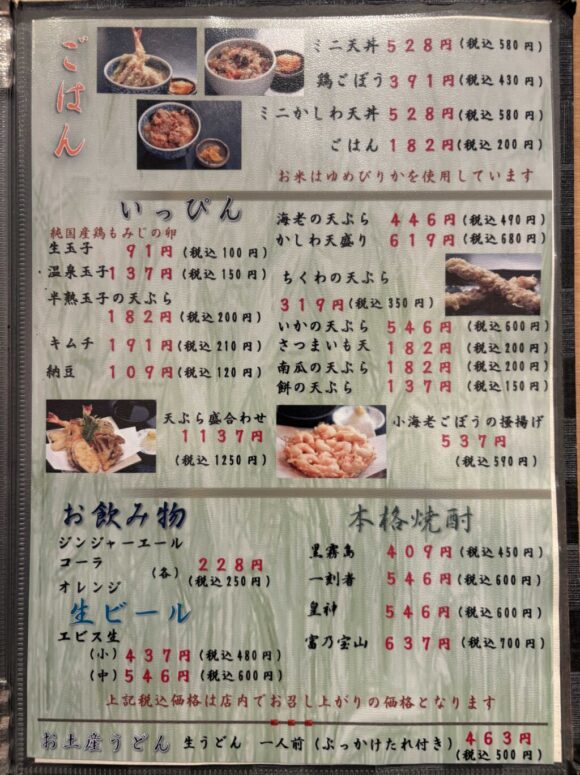 ごはん
ミニ天丼 528円(税込580円)
鶏ごぼう 391円(税込430円)
ミニかしわ天丼 528円(税込580円)
ごはん 182円(税込200円)
お米はゆめぴりかを使用しています
いっぴん
純国産鶏もみじの卵
生玉子 91円(税込100円)
温泉玉子 137円(税込150円)
半熟玉子の天ぷら
182円(税込200円)
キムチ 191円(税込210円)
納豆 109円(税込120円)
海老の天ぷら 446円(税込490円)
かしわ天盛り 619円(税込680円)
ちくわの天ぷら
319円(税込350円)
いかの天ぷら 546円(税込600円)
さつまいも天 182円(税込200円)
南瓜の天ぷら 182円(税込200円)
餅の天ぷら 137円(税込150円)
天ぷら盛合わせ
1137円
(税込1250円)
小海老ごぼうの掻揚げ
537円
(税込590円)
お飲み物
ジンジャーエール
コーラ
オレンジ
(各) 228円
(税込250円)
生ビール
エビス生
(小) 437円(税込480円)
(中) 546円(税込600円)
本格焼酎
黒霧島 409円(税込450円)
一刻者 546円(税込600円)
皇神 546円(税込600円)
富乃宝山 637円(税込700円)
上記税込価格は店内でお召し上がりの価格となります
お土産うどん 生うどん 一人前(ぶっかけたれ付き) 463円
(税込500円)